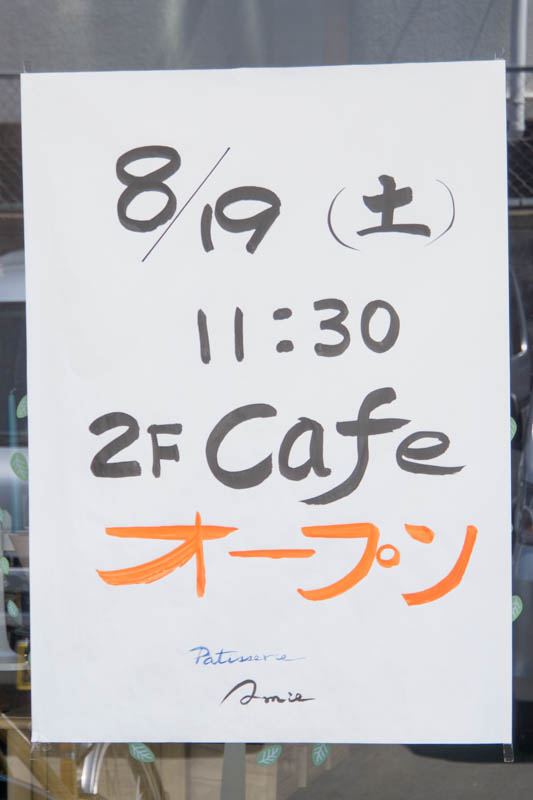 8/19 (土)
11:30
2F Cafe
オープン
Patisserie
Amie